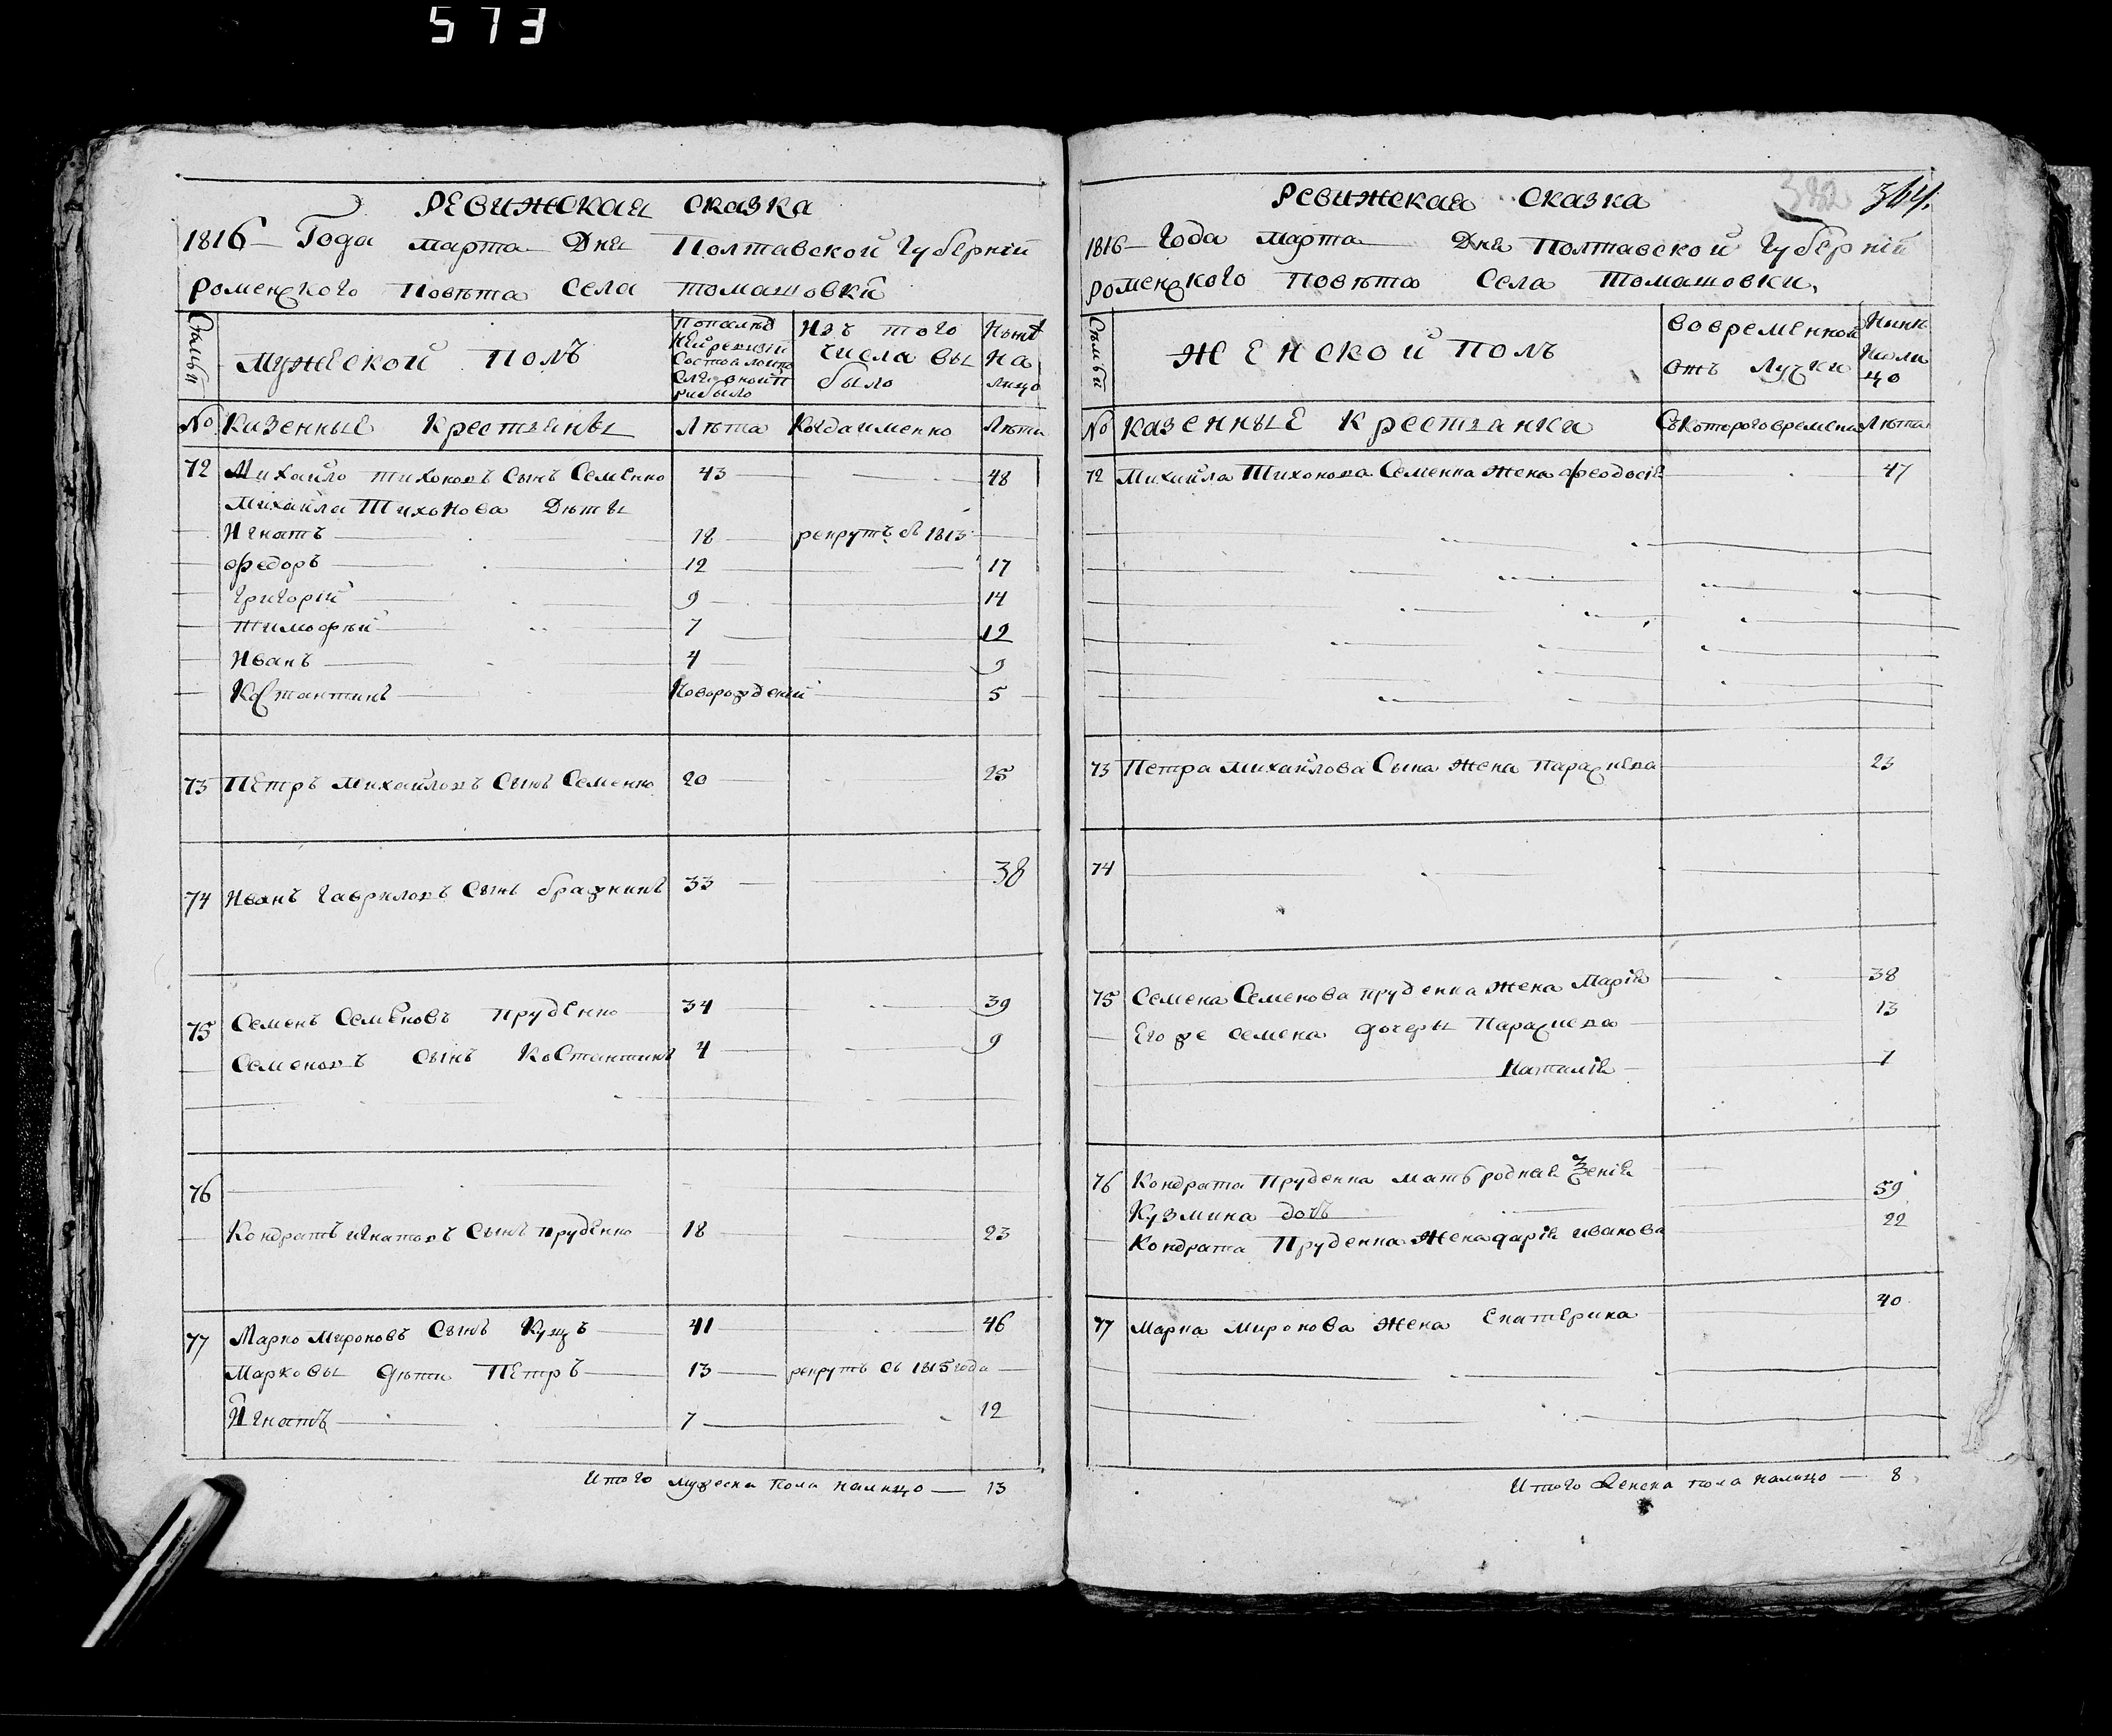 573
РЕВИЖСКАЯ СКАЗКА
1816 Года марта Дня Полтавской Губерній
Роменского Повѣта Села Томашовки
Мужеской Полъ
Изъ того числа вы было
На лицо
№ Казенные Крестьяны Лѣта Когда именно Лѣта
72 Михайло Тихоновъ Сынъ Семенко 43 48
Михайла Тихонова Дѣты
Игнатъ 18 рекрутъ въ 1813
Федоръ 12 17
Григорій 9 14
Тимофѣй 7 12
Иванъ 4 9
Костантинъ Новорожденій 5
73 Петръ Михайловъ Сынъ Семенко 20 25
74 Иванъ Гавриловъ Сынъ Бражникъ 33 38
75 Семенъ Семеновъ Пруденко 34 39
Семеновъ Сынъ Костантинъ 4 9
76
Кондратъ Игнатовъ Сынъ Пруденко 18 23
77 Марко Мироновъ Сынъ Куцъ 41 46
Марковы дѣти Петръ 13 рекрутъ съ 1815 года
Игнатъ 7 12
Итого мужеска пола налицо 13
Ревижская Сказка 364.
1816 Года Марта Дня Полтавской Губерній
Роменского Повѣта Села Томашовки,
Женской Полъ
Во временной отъ Лучки
На лицо
№ Казенные Крестьянки Съ Которого времени Лѣта
72 Михайла Тихонова Семенка Жена Феодосія 47
73 Петра Михайлова Сына Жена Параскева 23
74
75 Семена Семенова Пруденка Жена Марія 38
Его же Семена дочеры Параскева 13
Наталія 7
76 Кондрата Пруденка мать родная Ксенія
Кузмина дочь 59
Кондрата Пруденка Жена дарія Иванова 22
77 Марка Миронова Жена Екатерина 40
Итого Женска пола налицо 8